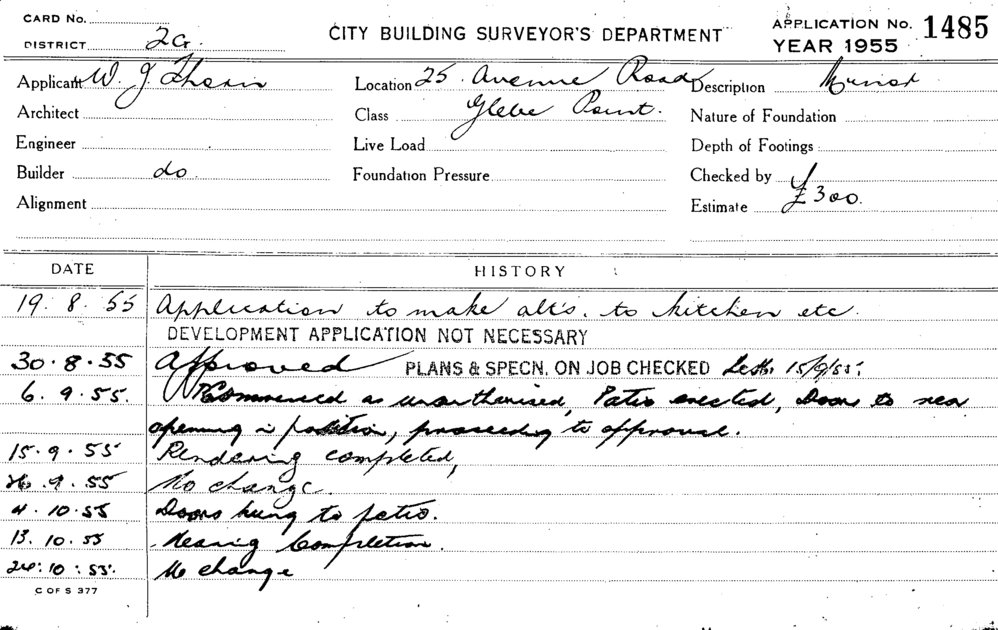 CARD No.
DISTRICT 2G.
CITY BUILDING SURVEYOR'S DEPARTMENT
APPLICATION No. 1485
YEAR 1955
Applicant W. J. Location 25 Avenue Road Description Minor
Architect Class Glebe Point. Nature of Foundation
Engineer Live Load Depth of Footings
Builder do. Foundation Pressure Checked by
Alignment Estimate £300.
DATE HISTORY
19.8.55 Application to make alt's. to kitchen etc.
DEVELOPMENT APPLICATION NOT NECESSARY
30.8.55 Approved PLANS & SPECN. ON JOB CHECKED 15/9/55.
6.9.55. Commenced as unauthorised, Patio erected, Doors to new
opening in position, proceeding to approval.
15.9.55 Rendering completed,
26.9.55 No change.
4.10.55 Doors hung to patio.
13.10.55 Nearing Completion.
24.10.55. No change
C OF S 377